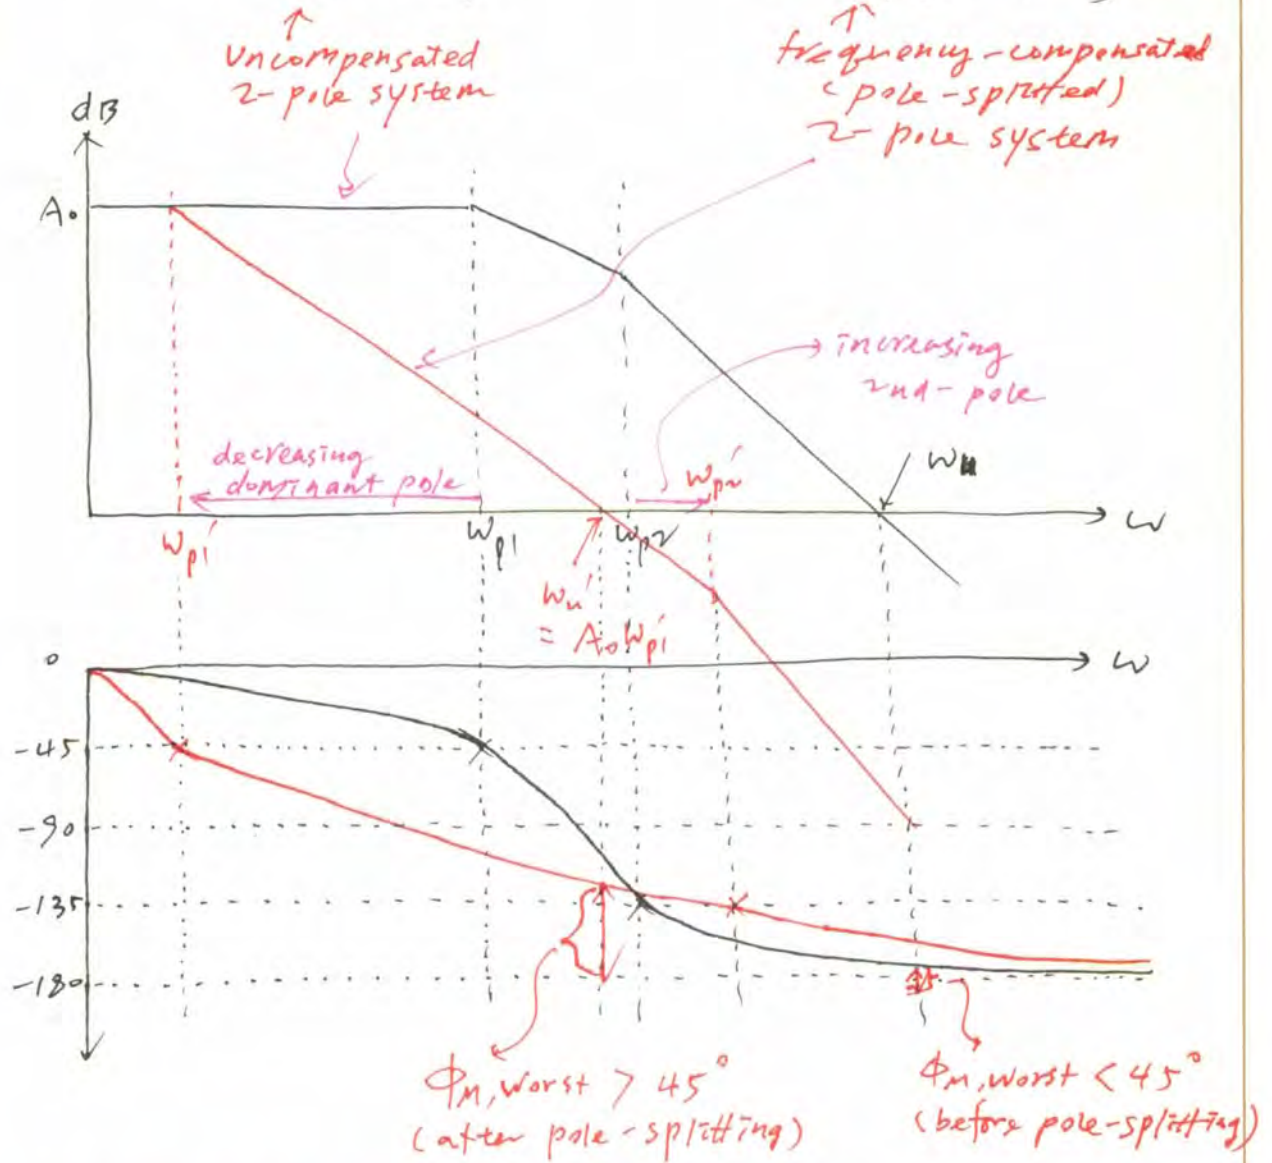 uncompensated
2-pole system
frequency-compensated
(pole-splitted)
2-pole system
dB
A₀
increasing
2nd-pole
decreasing
dominant pole
ωp2′
ωu
ω
ωp1′
ωp1
ωp2
ωu′
= A₀ωp1′
0
ω
-45
-90
-135
-180
ΦM,worst > 45°
(after pole-splitting)
ΦM,worst < 45°
(before pole-splitting)